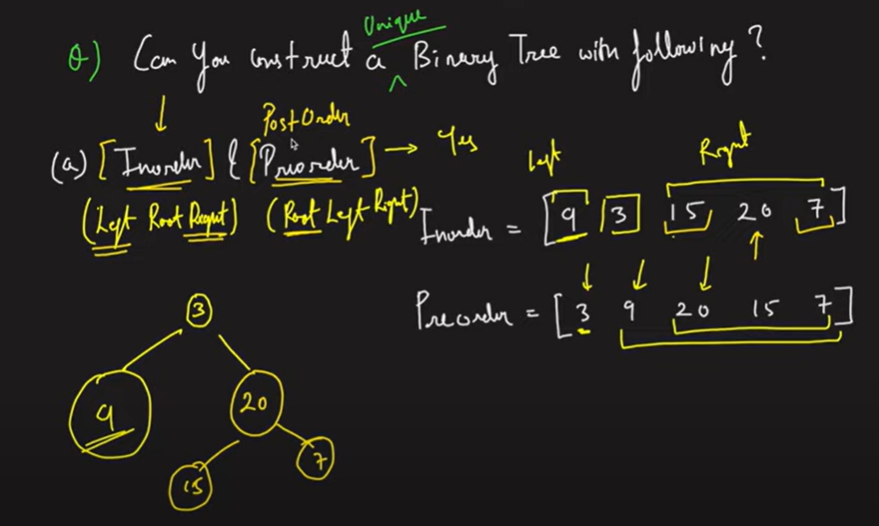 Unique
Q) Can You construct a ^ Binary Tree with following ?
PostOrder
(a) [Inorder] & [Preorder] → Yes
(Left Root Right) (Root Left Right)
Left Right
Inorder = [9 3 15 20 7]
Preorder = [3 9 20 15 7]
3
9 20
15 7